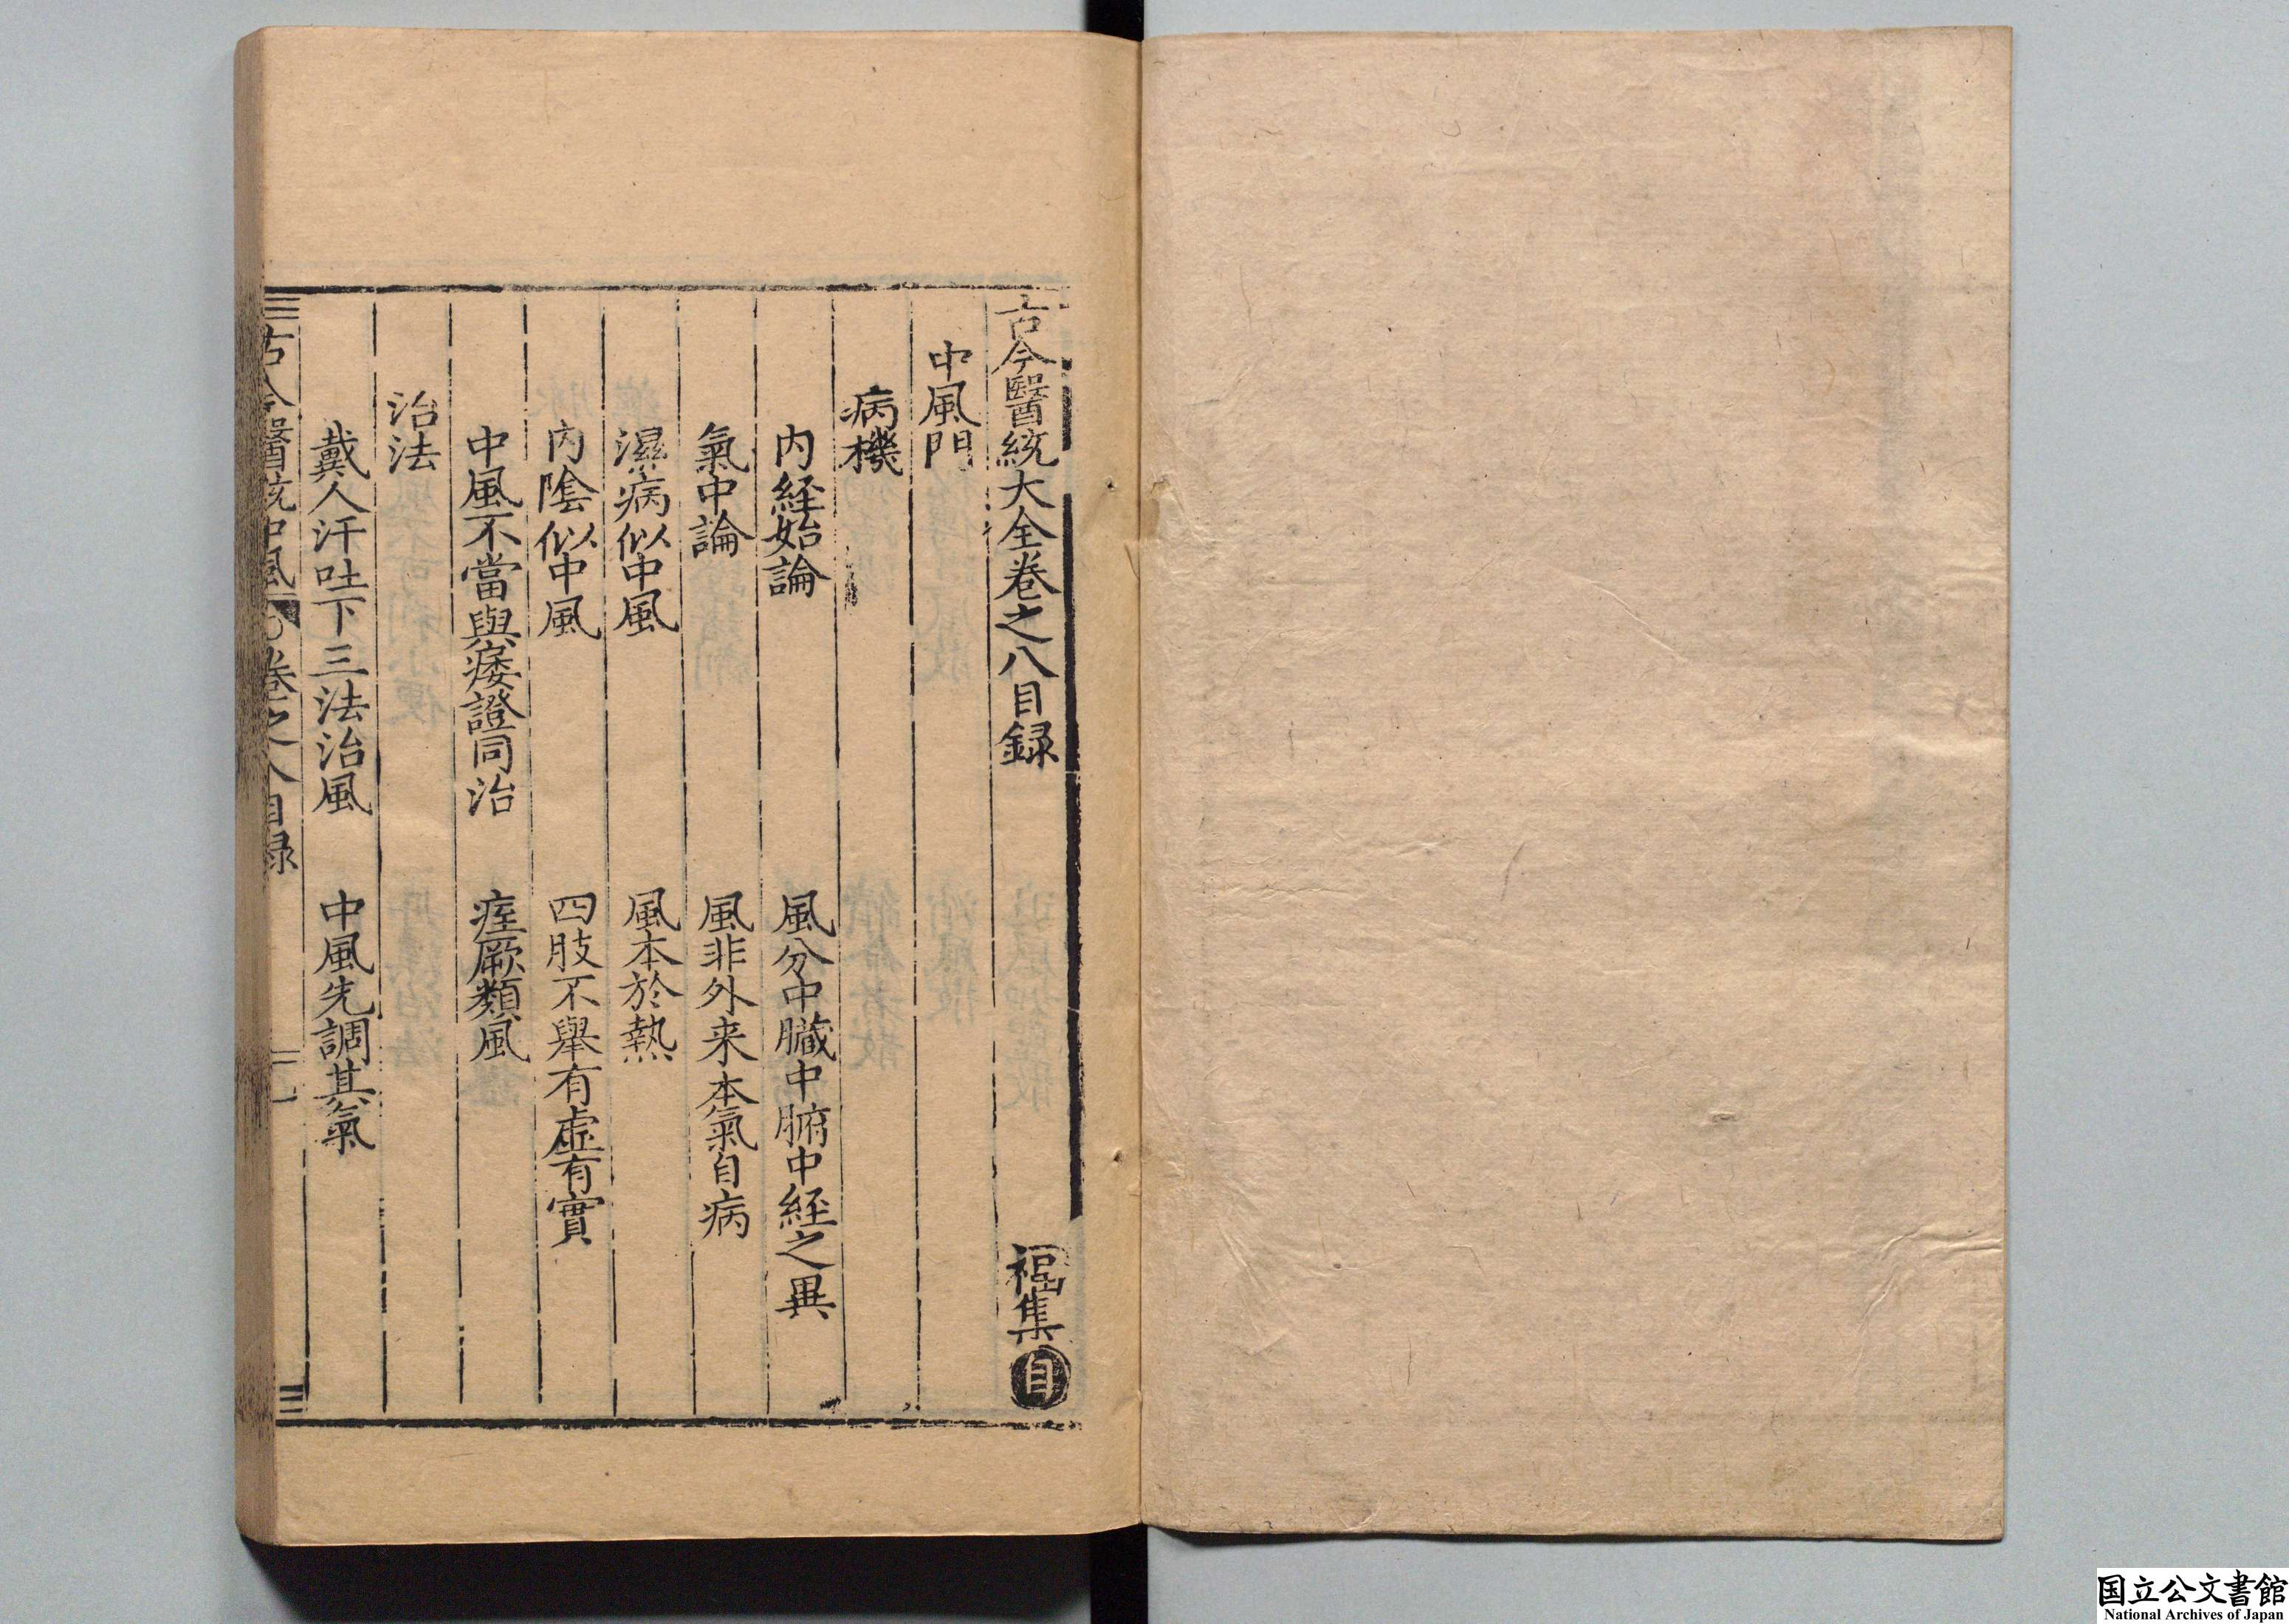 古今醫統大全卷之八目録　福集目
中風門
病機
内経始論　風分中臓中腑中経之異
氣中論　風非外来本氣自病
濕病似中風　風本於熱
内陰似中風　四肢不舉有虚有實
中風不當與痿證同治　痓厥類風
治法
戴人汗吐下三法治風　中風先調其氣
古今醫統中風　卷之八目録　一
国立公文書館
National Archives of Japan